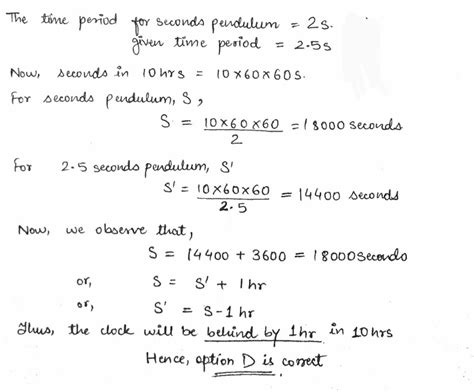 The time period for seconds pendulum = 2s.
given time period = 2.5s
Now, seconds in 10hrs = 10×60×60s.
For seconds pendulum, S,
S = 10×60×60 / 2 = 18000 seconds
For 2.5 seconds pendulum, S'
S' = 10×60×60 / 2.5 = 14400 seconds
Now, we observe that,
S = 14400 + 3600 = 18000seconds
or, S = S' + 1hr
or, S' = S-1hr
Thus, the clock will be behind by 1hr in 10hrs
Hence, option D is correct